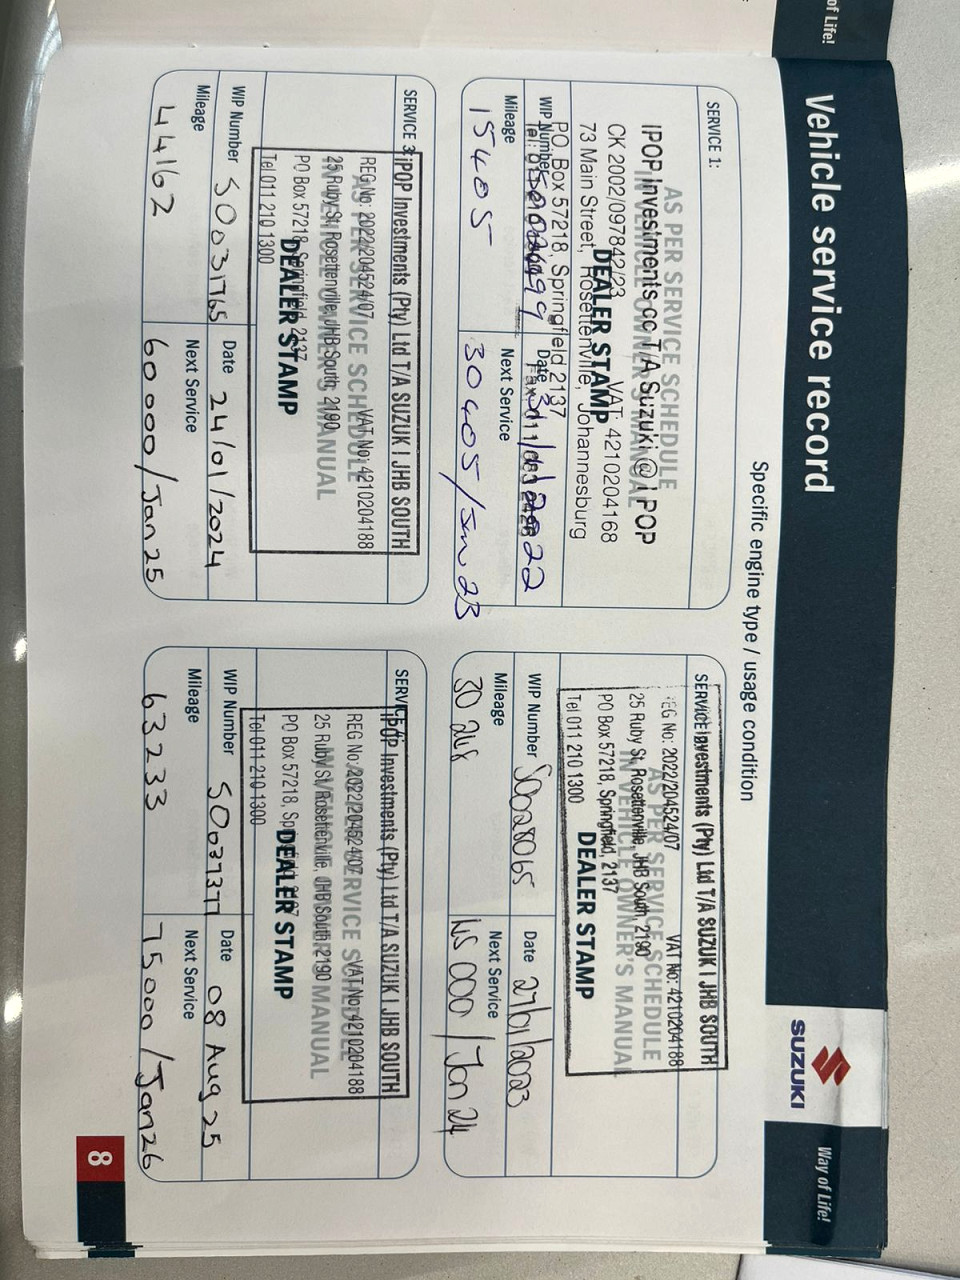 of Life!
Vehicle service record
SUZUKI
Way of Life!
Specific engine type / usage condition
SERVICE 1:
AS PER SERVICE SCHEDULE
IN VEHICLE OWNER'S MANUAL
DEALER STAMP
IPOP Investments cc T/A Suzuki @ I POP
CK 2002/097842/23 VAT: 4210204168
73 Main Street, Rosettenville, Johannesburg
PO. Box 57218, Springfield 2137
WIP Number
Date
2022
Mileage 15405
Next Service 30405/Jan 23
SERVICE
Investments (Pty) Ltd T/A SUZUKI JHB SOUTH
REG No: 2022/204524/07 VAT No: 4210204188
AS PER SERVICE SCHEDULE
25 Ruby St, Rosettenville, JHB South, 2190
IN VEHICLE OWNER'S MANUAL
PO Box 57218, Springfield, 2137
DEALER STAMP
Tel 011 210 1300
WIP Number S0028065
Date 27/01/2023
Mileage 30 248
Next Service 45 000 / Jan 24
SERVICE 3:
iPOP Investments (Pty) Ltd T/A SUZUKI JHB SOUTH
REG No: 2022/204524/07 VAT No: 4210204188
AS PER SERVICE SCHEDULE
25 Ruby St, Rosettenville, JHB South, 2190
IN VEHICLE OWNER'S MANUAL
PO Box 57218, Springfield, 2137
DEALER STAMP
Tel 011 210 1300
WIP Number S0031765
Date 24/01/2024
Mileage 44162
Next Service 60000/Jan 25
SERVICE
iPOP Investments (Pty) Ltd T/A SUZUKI JHB SOUTH
REG No: 2022/204524/07 VAT No: 4210204188
SERVICE SCHEDULE
25 Ruby St, Rosettenville, JHB South, 2190
MANUAL
PO Box 57218, Springfield, 2137
DEALER STAMP
Tel 011 210 1300
WIP Number S0037377
Date 08 Aug 25
Mileage 63233
Next Service 75000/Jan 26
8